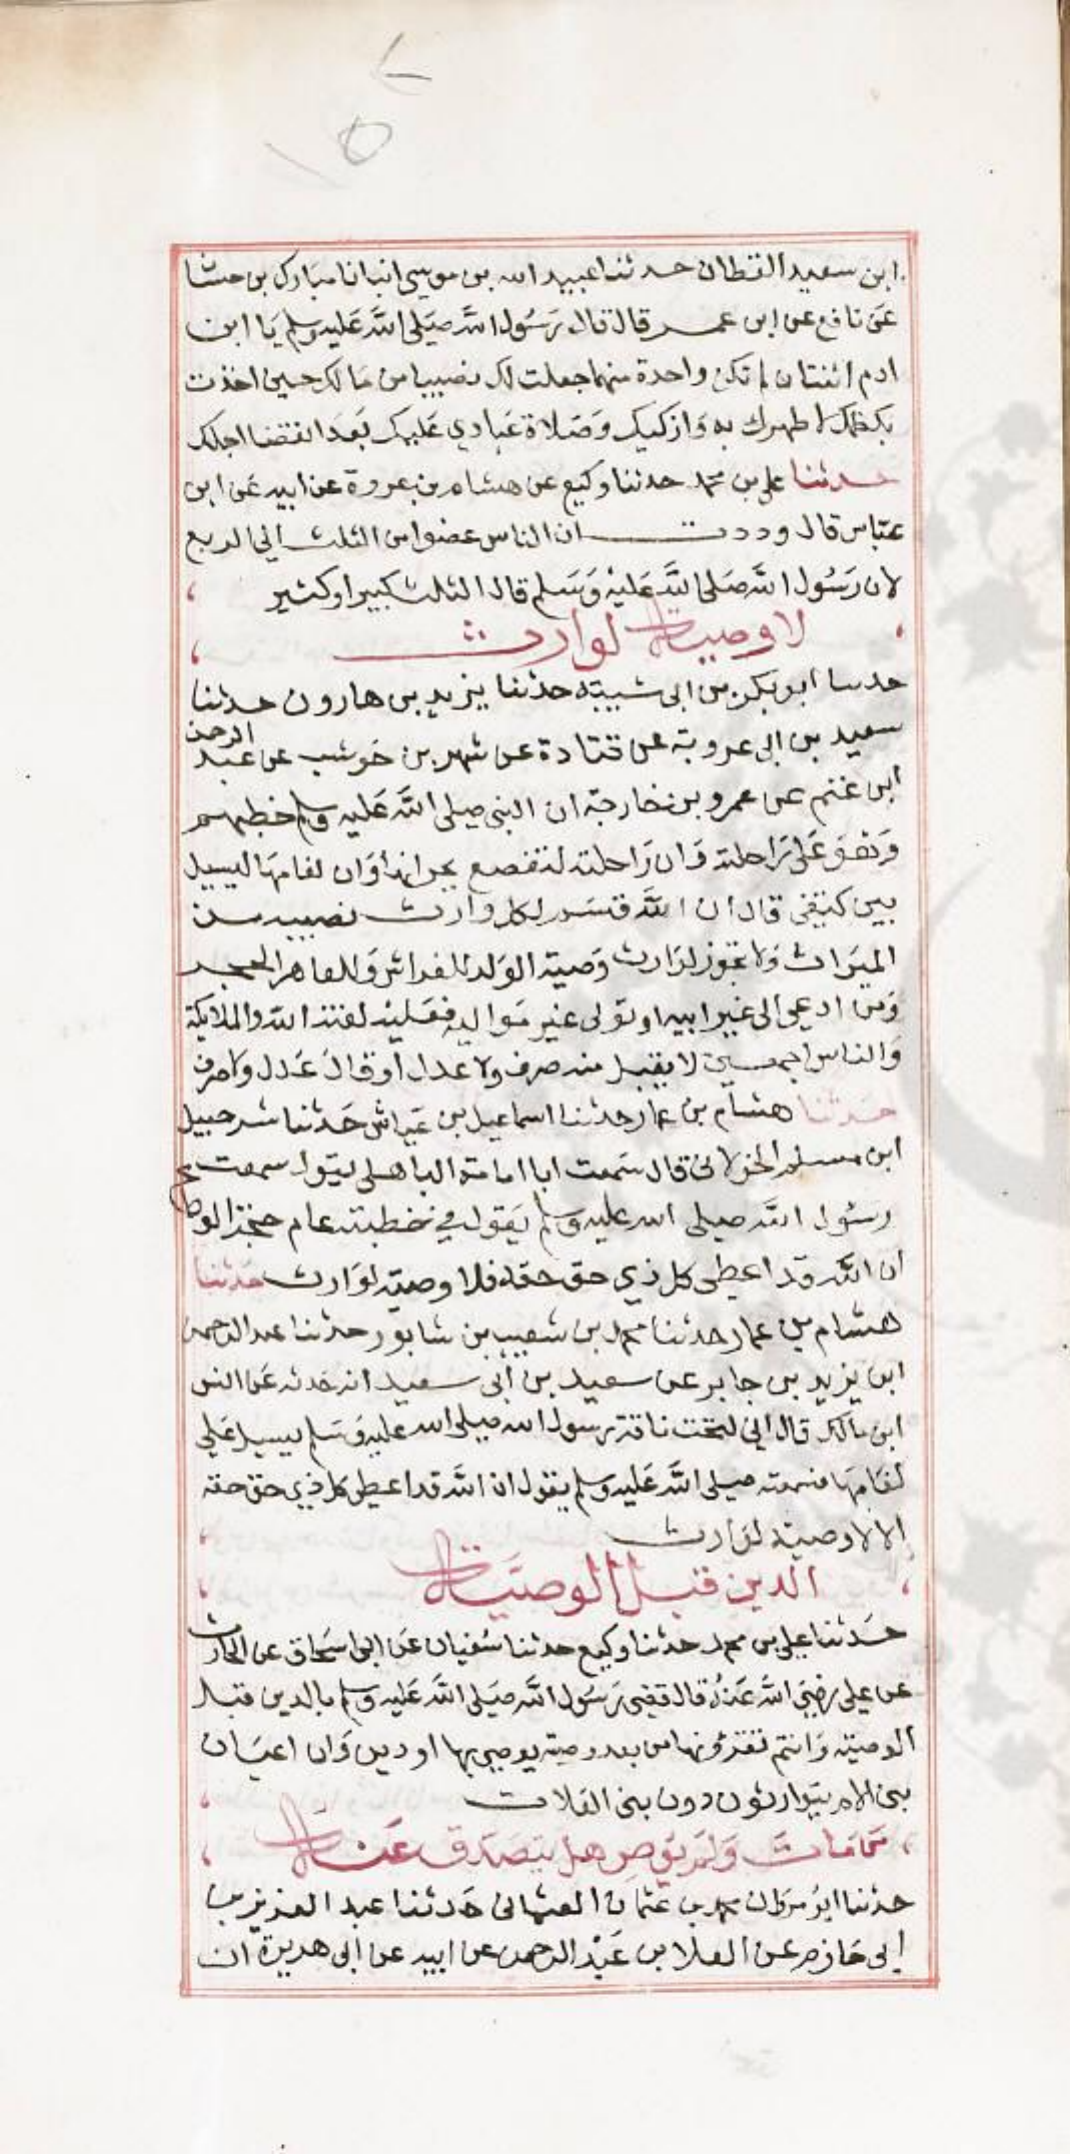 ابن سعيد القطان حدثنا عبيد الله بن موسى انبانا مبارك بن حسا
عَن نافع عن ابن عمر قال قال رَسُول الله صَلى الله عَليه وسلم يَا ابن
ادم اثنتان لم تكن واحدة منهما جعلت لك نصيبا من مَالك حين اخذت
بكظمك لاطهرك به وَازكيك وَصَلاة عبادي عَليك بَعد انقضا اجلك
حدثنا علي بن محمد حدثنا وكيع عن هشام بن عروة عن ابيه عَن ابن
عبّاس قال وددت ان الناس غضوا من الثلث الي الربع
لان رَسُول الله صَلى الله عَليْه وَسَلم قال الثلث كبير او كثير
لا وصية لوارث
حدثنا ابو بكر بن ابى شيبة حدثنا يزيد بن هارون حدثنا
سعيد بن ابى عروبة عن قتادة عن شهر بن حَوشب عن عبد الرحمن
ابن غنم عن عمرو بن خارجة ان النبى صلى الله عَليه وسلم خطبهم
وَهو عَلى رَاحلته وَان رَاحلته لتقصع بجرتها وَان لغامهَا ليسيل
بين كتفى قال ان الله قسَم لكل وارث نصيبه من
الميرَاث وَلا تجوز لوَارث وَصية الوَلد للفراش وَللعاهر الحجر
وَمن ادعى الى غير ابيه او تولى غير مَواليه فعَليه لعنة الله والملايكة
وَالناس اجمعين لا يقبل منه صرف ولا عدل او قالَ عَدل ولا صرف
حَدثنا هشام بن عمار حدثنا اسماعيل بن عيَاش حَدثنا شرحبيل
ابن مسلم الخولانى قال سَمعت ابا امامة الباهلى يقول سمعت
رسُول الله صلى الله عليه وسلم يَقول في خطبته عام حجة الوداع
ان الله قد اعطى كل ذي حق حقه فلا وصية لوَارث حَدثنا
هشام بن عمار حدثنا محمد بن شعيب بن شابور حدثنا عبد الرحمن
ابن يزيد بن جابر عن سعيد بن أبى سعيد انه حَدثه عَن انس
ابن مالك قال اني لتحت ناقة رسول الله صلى الله عليه وَسَلم يسيل عَلي
لغَامهَا فسمعته صلى الله عَليه وسلم يقول ان الله قد اعطى كل ذي حق حقه
الا لا وصية لوَارث
الدين قبل الوصيَة
حَدثنا علي بن محمد حدثنا وكيع حدثنا سُفيان عَن ابى اسحَاق عن الحارث
عن علي رضيَ الله عَنهُ قال قضى رَسُول الله صَلى الله عَليه وسلم بالدين قبل
الوصيّة وَانتم تقرؤنها من بعد وصية يوصى بها او دين وَان اعيَان
بنى الام يتوارثون دون بنى العَلات
مَن مَاتَ وَلم يوص هل يتصَدق عَنه
حدثنا ابوُ مروَان محمد بن عثمان العثمانى حَدثنا عبد العزيز بن
ابى حَازم عن العلا بن عَبْد الرحمن عن ابيه عن ابى هريرة ان